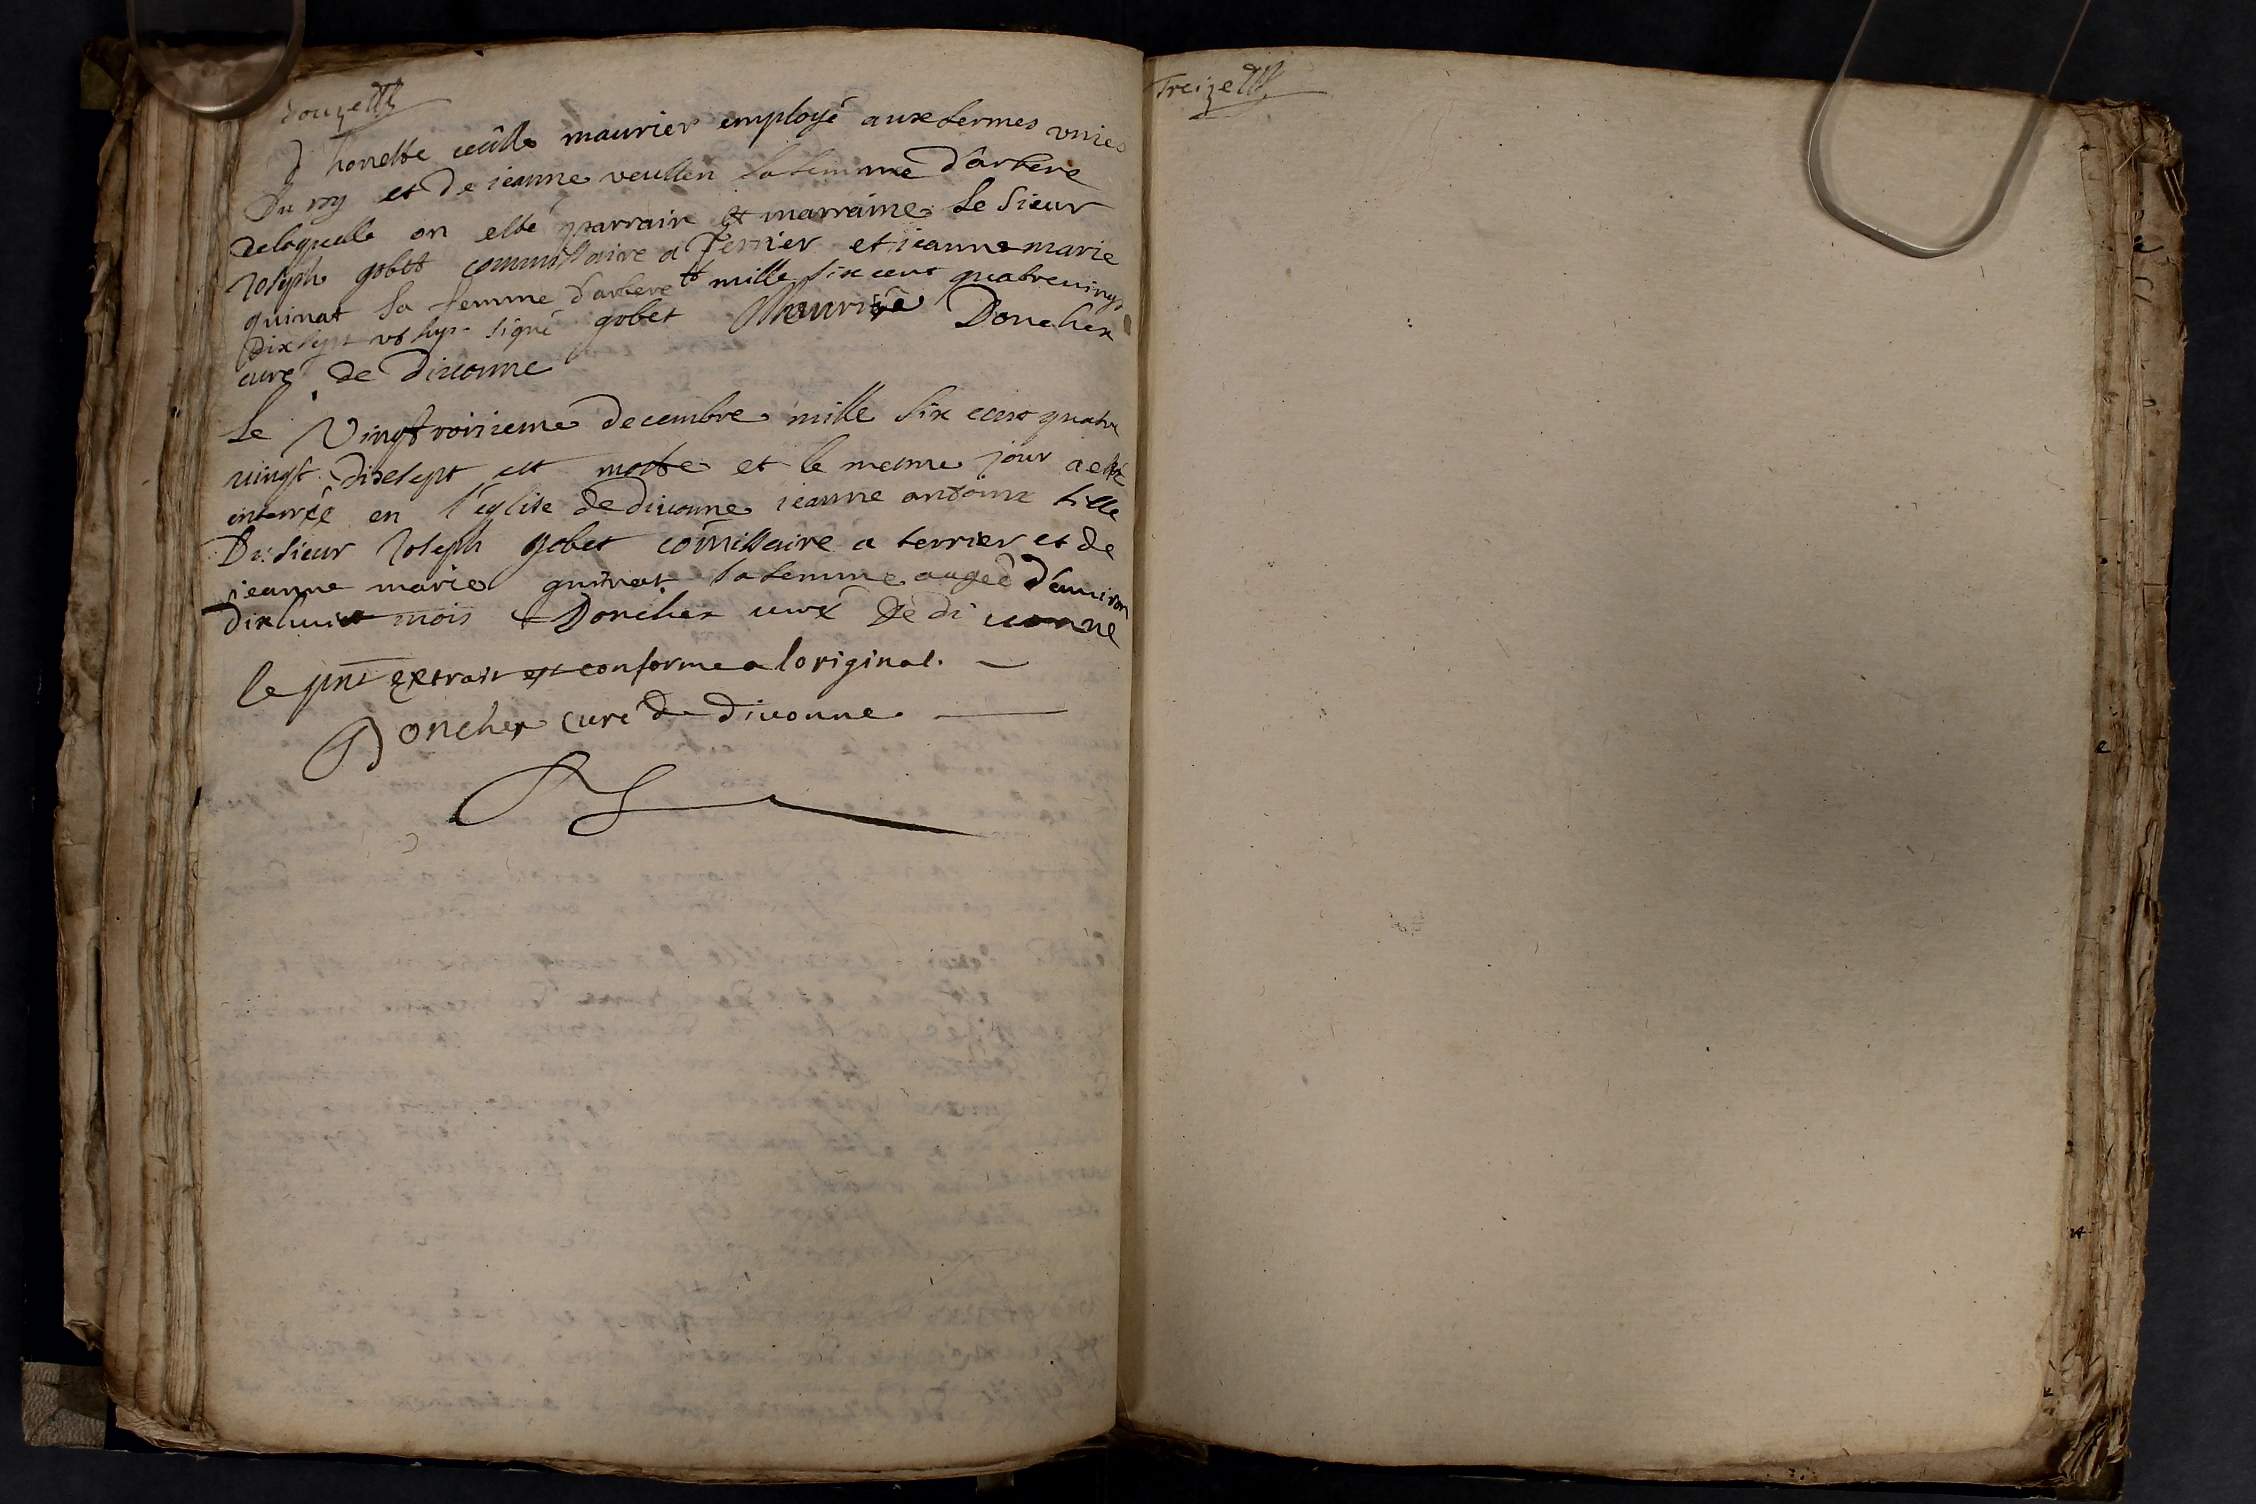 douze
d honeste maurier employé aux fermes vnies
Du roy et De jeanne veullen sa femme d'arbere
De laquelle on esté parrain et marraine Le Sieur
Joseph gobet commissaire a Terrier et jeanne marie
quinat sa femme d'arbere mille six cent quatre vingt
Dix sept vt sup. signé gobet Doncher
curé de Diuonne
Le Vingtroisieme decembre mille six cent quatre
vingt Dixsept est morte et le mesme jour a esté
enterrée en l'église de diuonne jeanne antoine fille
Du sieur Joseph gobet cõmissaire a terrier et de
jeanne marie quinat sa femme aagée d'enuiron
dixhuit mois Doncher curé de diuonne
le pnt extrait est conforme a loriginal.
Doncher curé de diuonne
Treize